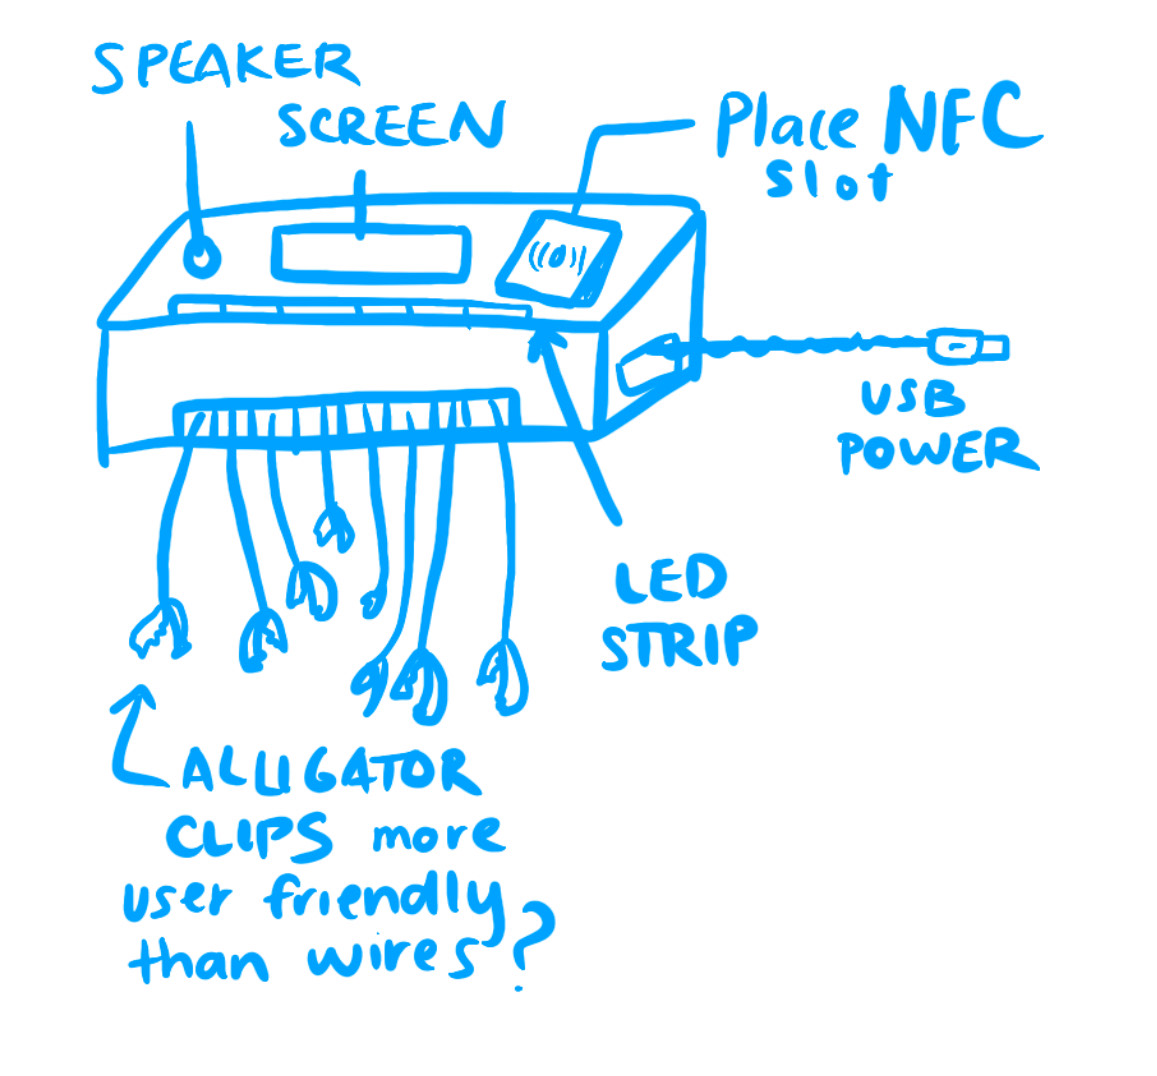 SPEAKER
SCREEN
Place NFC
Slot
USB
POWER
LED
STRIP
ALLIGATOR
CLIPS more
user friendly
than wires?